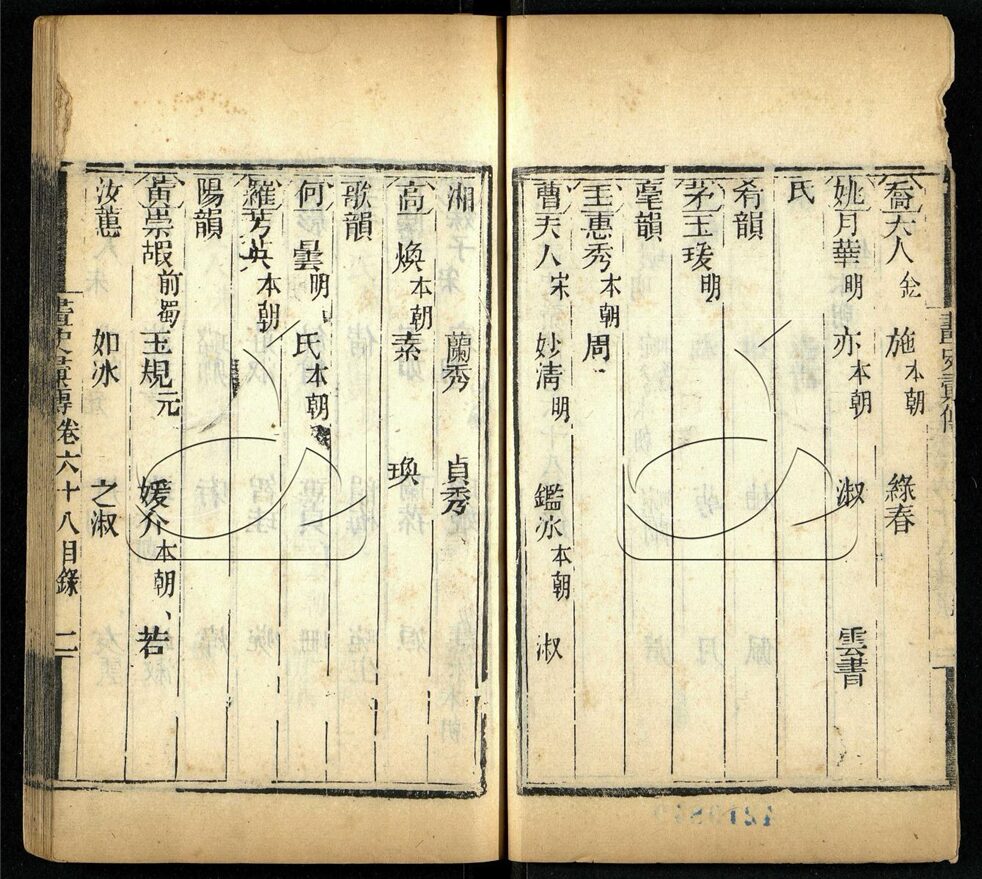 喬夫人金　施本朝　綠春
姚月華明　亦本朝　淑　雲書
氏
肴韻
茅玉瑗明
毫韻
王惠秀本朝　周
曹夫人宋　妙清明　鑑冰本朝　淑
湘　蘭秀　貞秀
高　煥本朝　素　瑛
歌韻
何　曇明　氏本朝
羅芳英本朝
陽韻
黃崇嘏前蜀　王規元　媛介本朝　若
汝蕙　如冰　之淑
畫史彙傳　卷六十八目錄　二